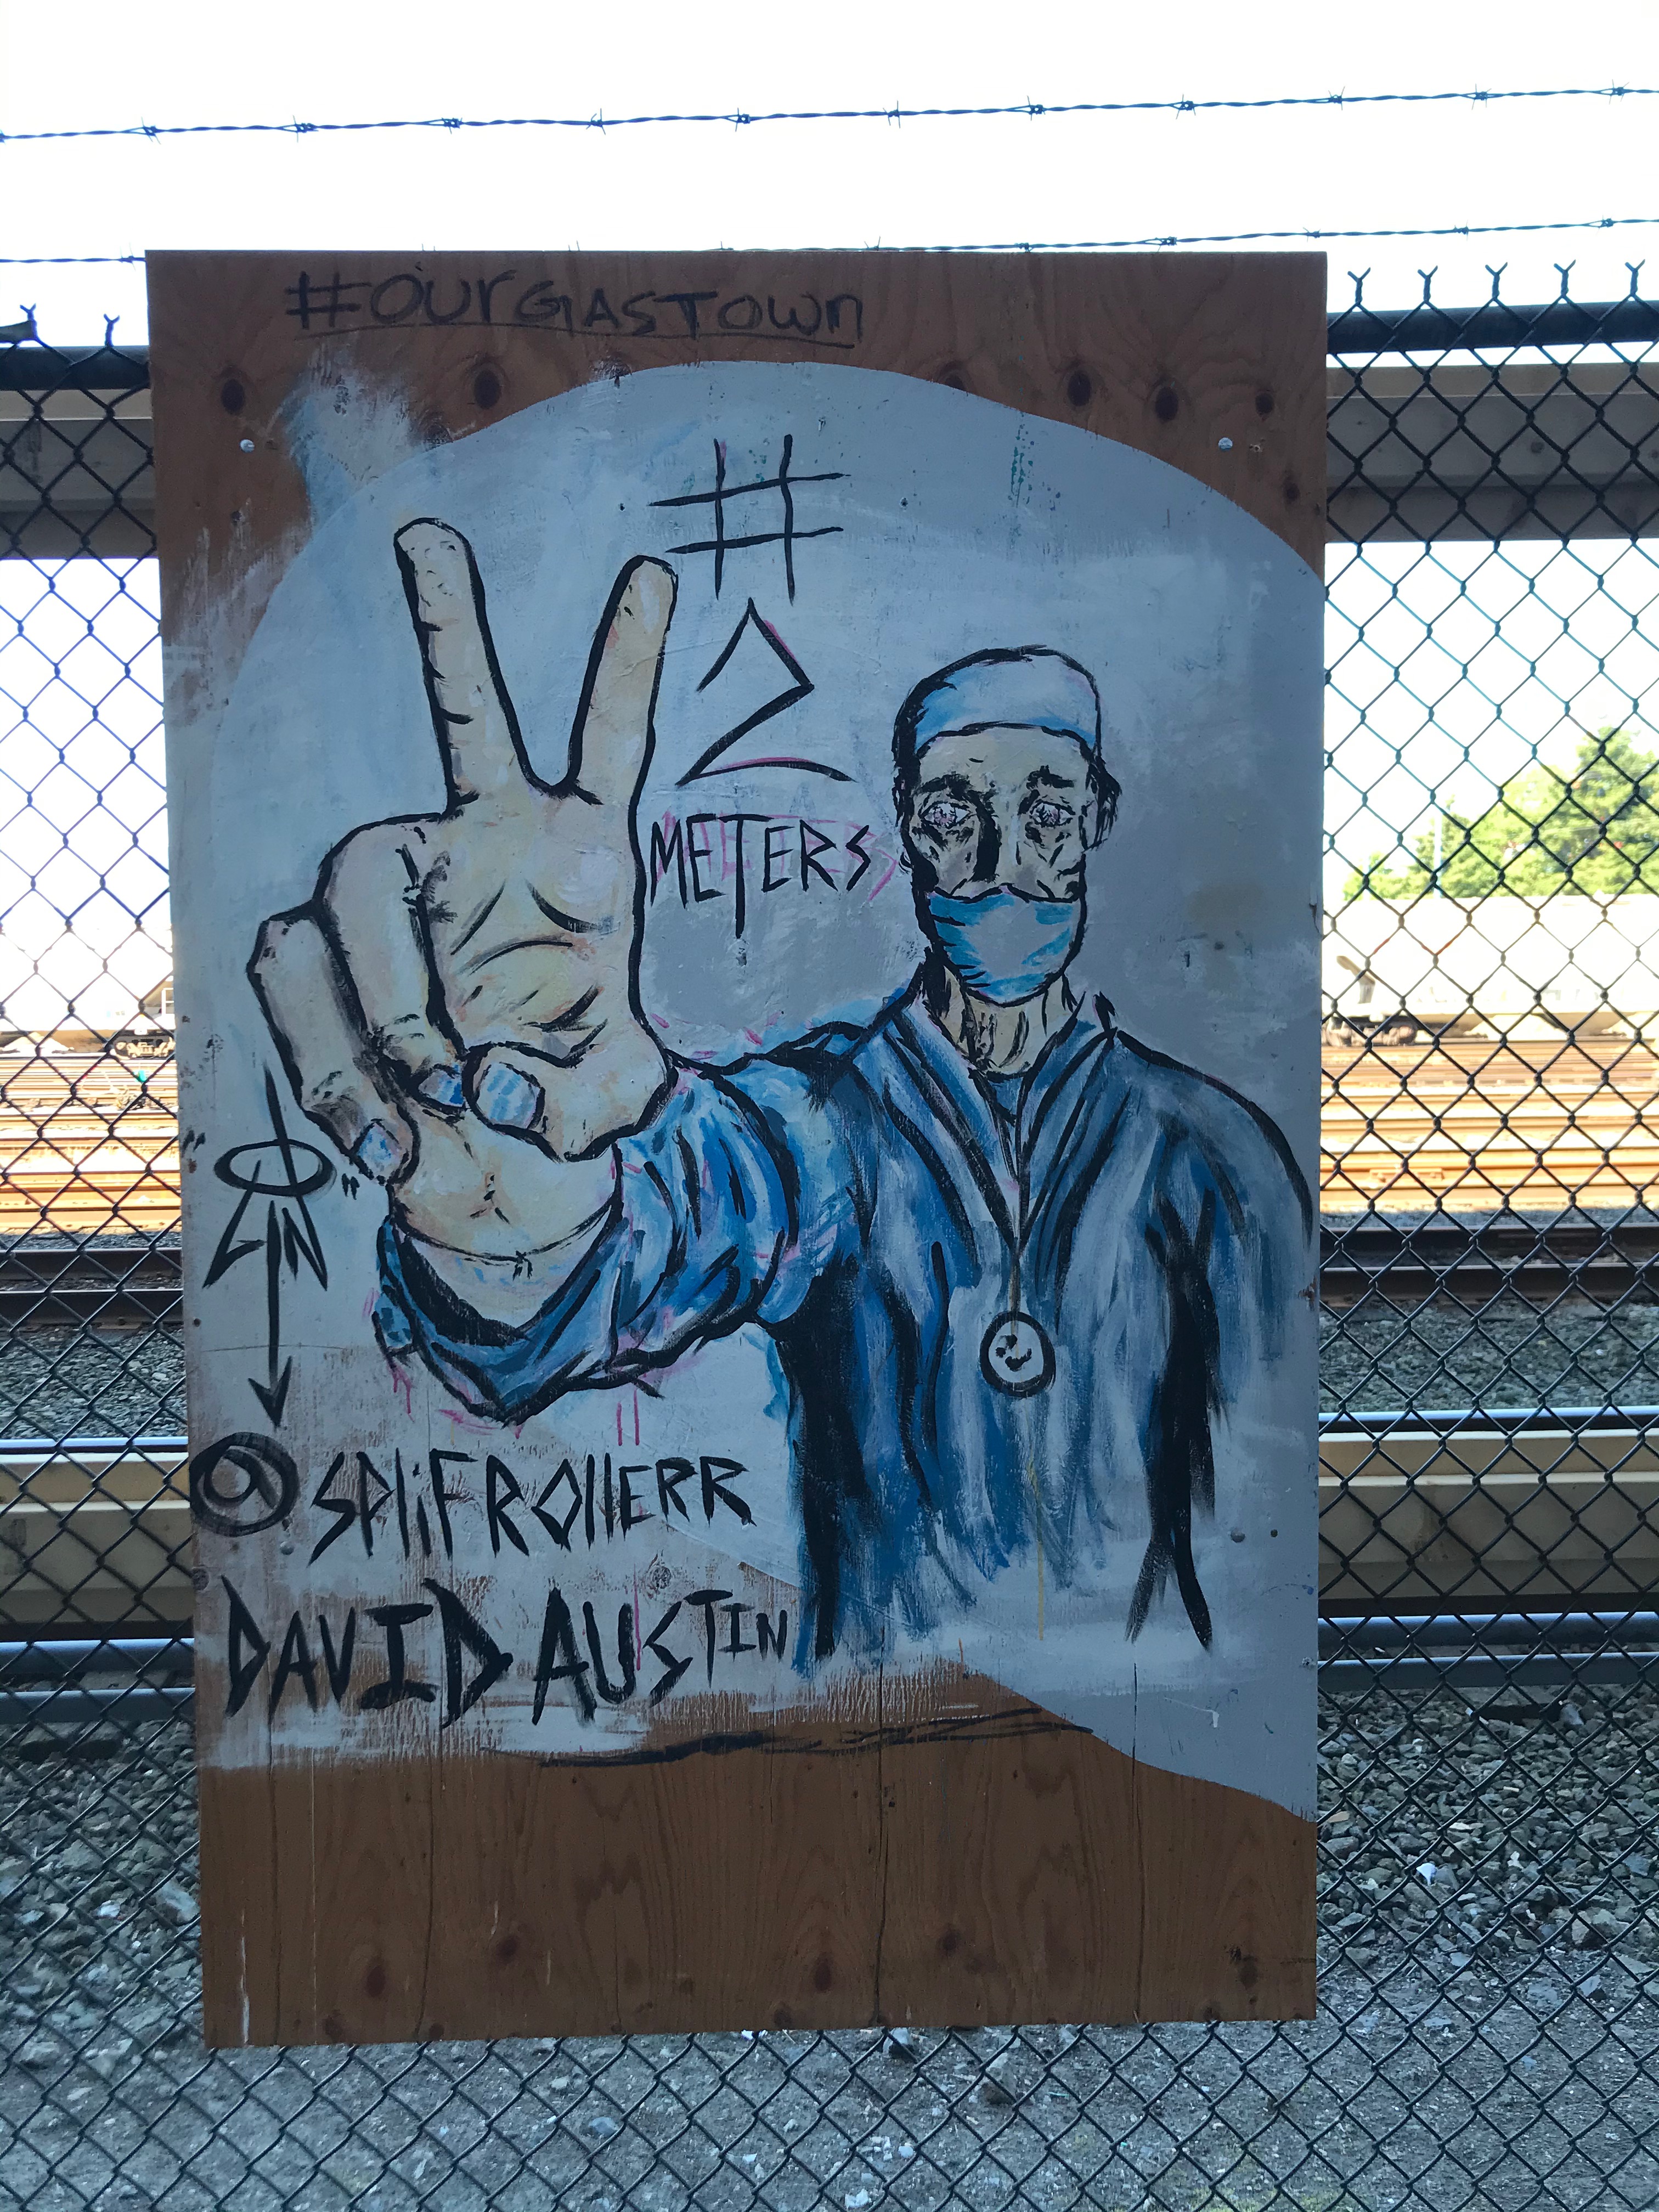 #OurGasTown
#
2
METERS
@SPliFROllERR
DAVID AUSTIN